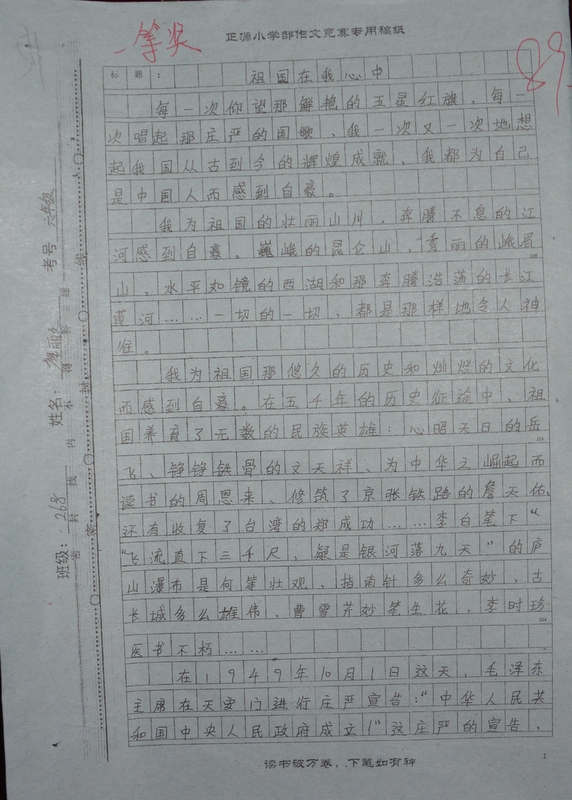 一等奖
正源小学部作文竞赛专用稿纸
89
标 题： 祖国在我心中
每一次仰望那鲜艳的五星红旗，每一
次唱起那庄严的国歌，我一次又一次地想
起我国从古到今的辉煌成就，我都为自己
是中国人而感到自豪。
我为祖国的壮丽山川，奔腾不息的江
河感到自豪。巍峨的昆仑山，秀丽的峨眉
山、水平如镜的西湖和那奔腾浩荡的长江
黄河……一切的一切，都是那样地令人神
往。
我为祖国那悠久的历史和灿烂的文化
而感到自豪。在五千年的历史征途中，祖
国养育了无数的民族英雄：心昭天日的岳
飞、铮铮铁骨的文天祥、为中华之崛起而
读书的周恩来、修筑了京张铁路的詹天佑、
还有收复了台湾的郑成功……李白笔下“
“飞流直下三千尺，疑是银河落九天”的庐
山瀑布是何等壮观，指南针多么奇妙，古
长城多么雄伟，曹雪芹妙笔生花，李时珍
医书不朽……
在1949年10月1日这天，毛泽东
主席在天安门进行庄严宣告：“中华人民共
和国中央人民政府成立！”这庄严的宣告，
读书破万卷，下笔如有神
1
班级：268
姓名：
考号 六年级
密 封 线 内 不 得 答 题